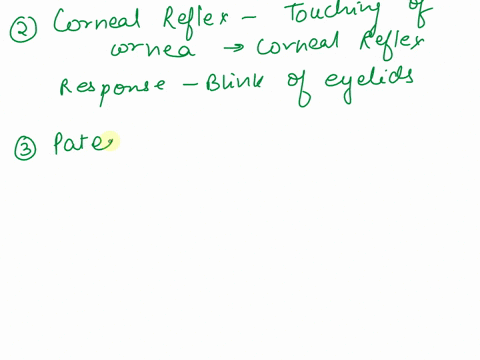 ② Corneal Reflex - Touching of
cornea → Corneal Reflex
Response - Blink of eyelids
③ Pate